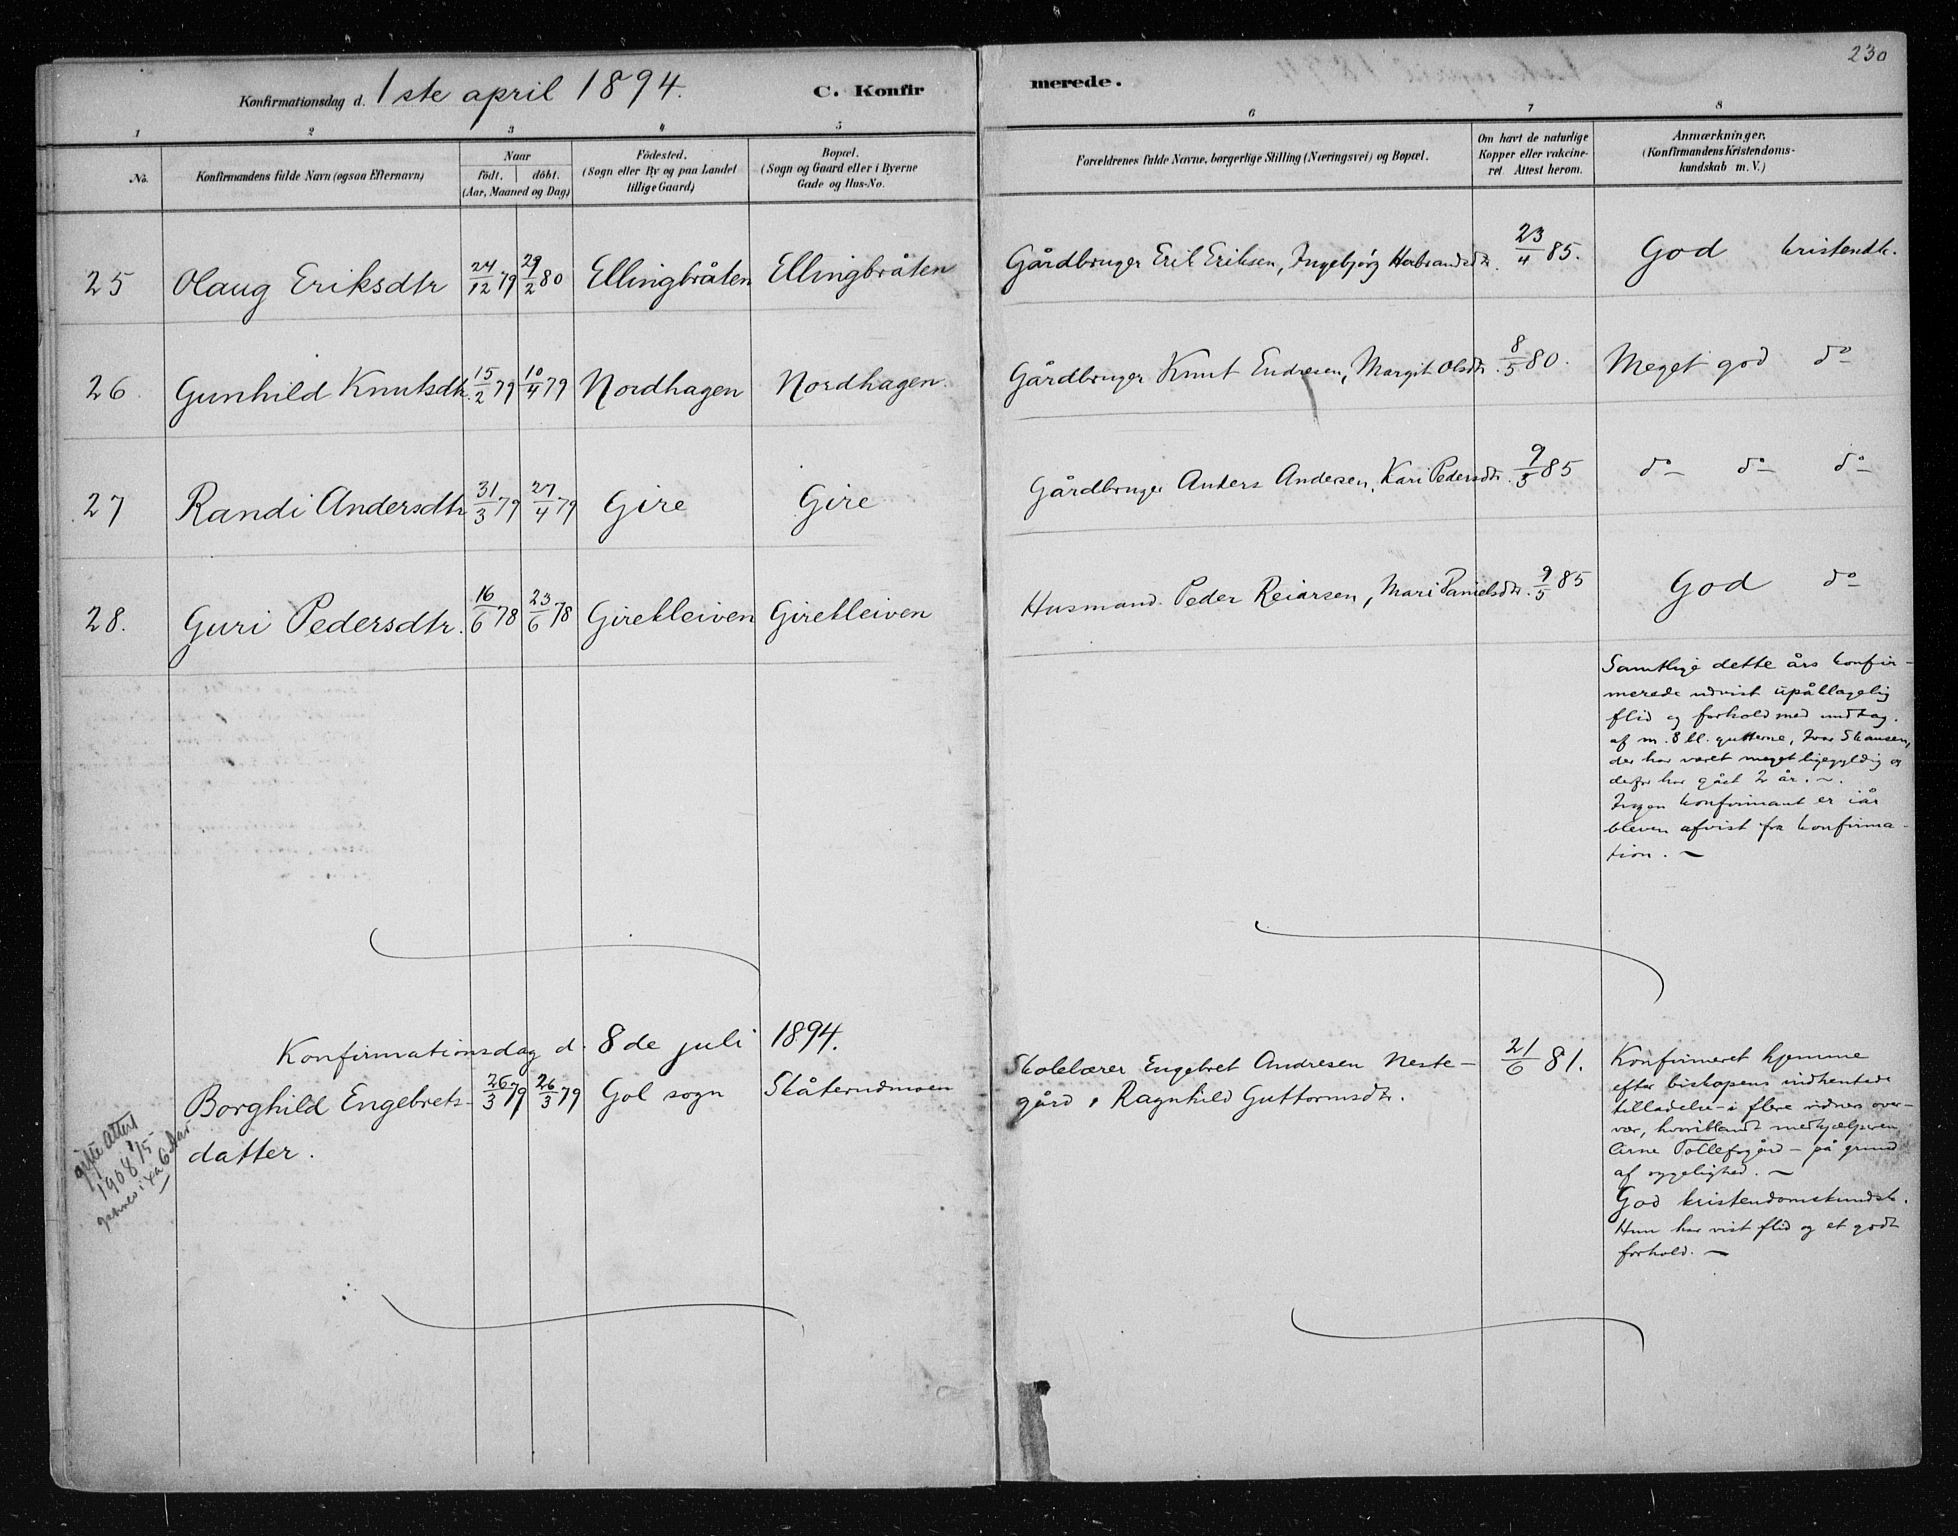 230
Konfirmationsdag d. 1ste april 1894. C. Konfirmerede.
1 2 3 4 5 6 7 8
No. Konfirmandens fulde Navn (ogsaa Efternavn) Naar födt. döbt. (Aar, Maaned og Dag) Födested. (Sogn eller By og paa Landet tillige Gaard) Bopæl. (Sogn og Gaard eller i Byerne Gade og Hus-No. Forældrenes fulde Navne, borgerlige Stilling (Næringsvei) og Bopæl. Om havt de naturlige Kopper eller vakcineret Attest herom. Anmærkninger. (Konfirmandens Kristendomskundskab m. V.)
25 Olaug Eriksdtr 24/12 79 29/2 80 Ellingbråten Ellingbråten Gårdbruger Erik Eriksen, Ingebjørg Herbrandsdtr. 23/4 85. God kristendk.
26. Gunhild Knutsdtr. 15/2 79 10/4 79 Nordhagen Nordhagen. Gårdbruger Knut Endresen, Margit Olsdtr. 8/5 80. Meget god do
27 Randi Andersdtr 31/3 79 27/4 79 Gire Gire Gårdbruger Anders Andersen, Kari Pedersdtr. 9/5 85 do do do
28. Guri Pedersdtr. 16/6 78 23/6 78 Girekleiven Girekleiven Husmand. Peder Reiarsen, Mari Danielsdtr. 9/5 85 God do
Samtlige dette års konfir-
merede udvist upåklagelig
flid og forhold med undtag.
af m. 8 bl. gutterne, Ivar Skansen,
der har været meget ligegyldig og
derfor har gået 2 år. ~.
Ingen konfirmant er iår
bleven afvist fra konfirma-
tion. ~
Konfirmationsdag d. 8de juli 1894.
Borghild Engebrets- 26/3 79 26/3 79 Gol sogn Skåterudmoen Skolelærer Engebret Andresen Neste- 21/6 81.
datter. gård, Ragnhild Guttormsdtr.
Konfirmeret hjemme
efter biskopens indhentede
tilladelse - i flere vidners over-
vær, hvoriblandt medhjælperen
Arne Tollefsgård - på grund
af sygelighed. ~
God kristendomskundsk.
Hun har vist flid og et godt
forhold. ~
attest
1908